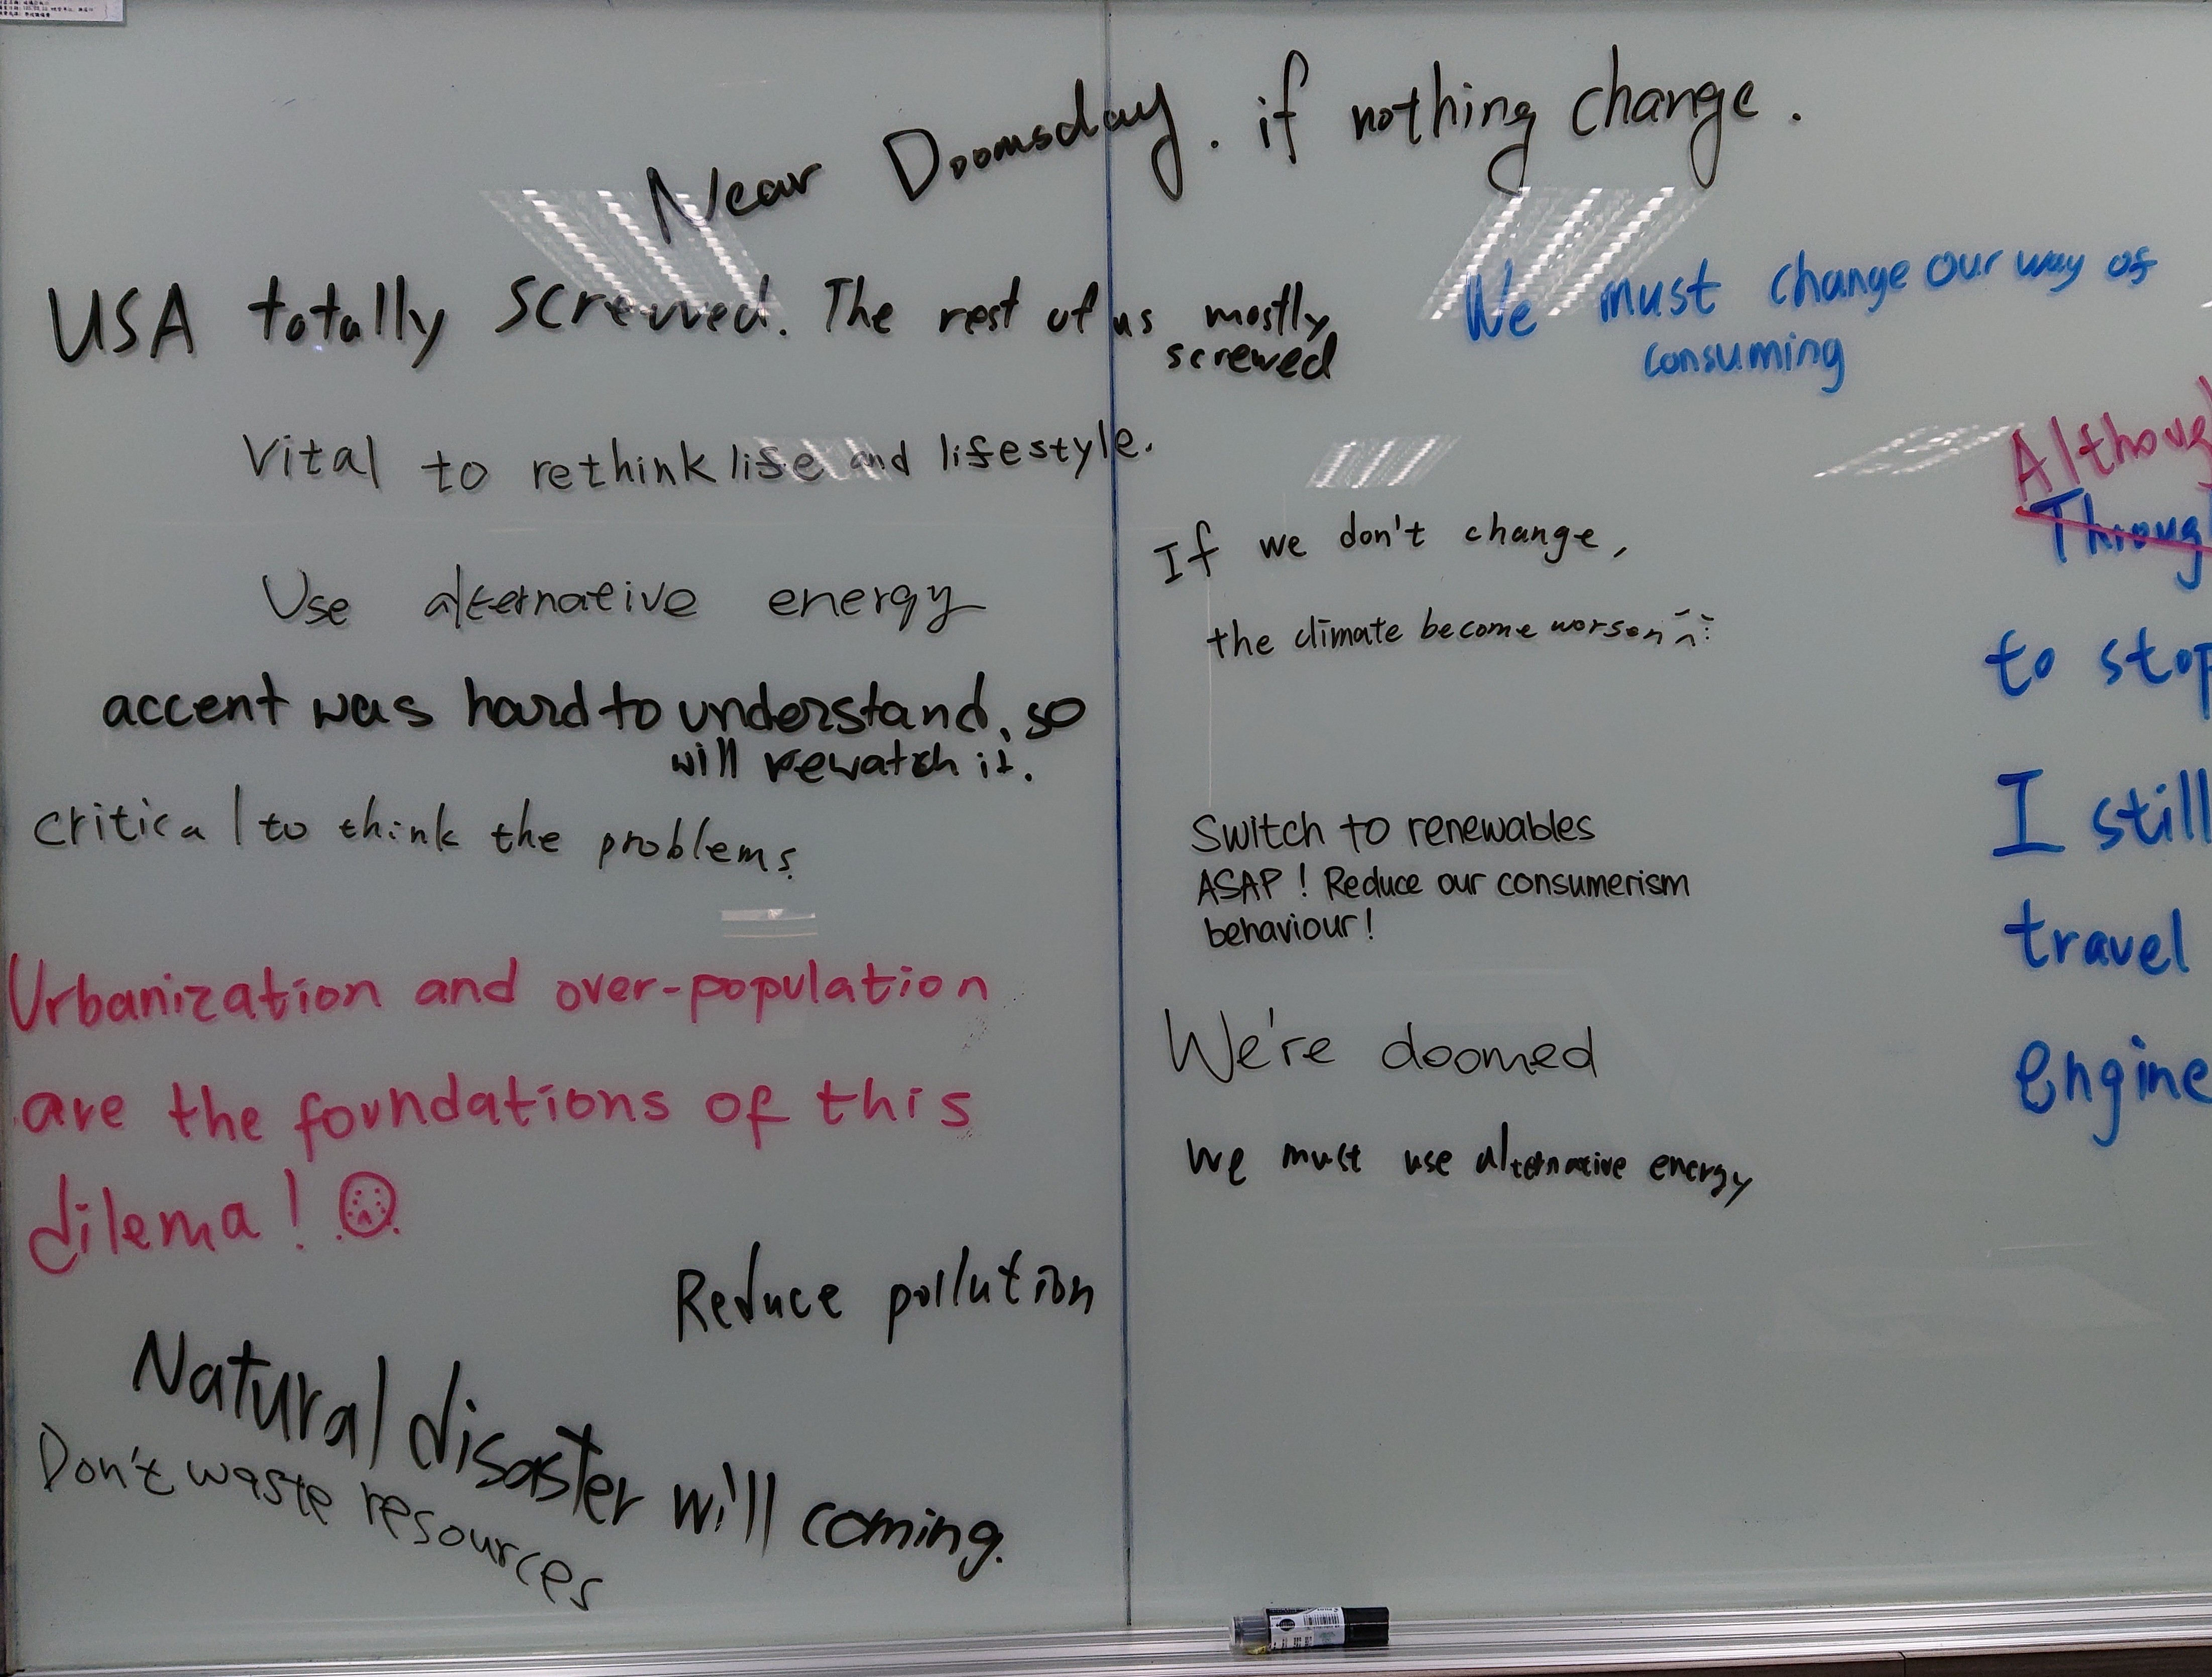 Near Doomsday. if nothing change.
USA totally screwed. The rest of us mostly
screwed
We must change our way of
consuming
Vital to rethink life and lifestyle.
Use alternative energy
accent was hard to understand, so
will rewatch it.
critical to think the problems.
Urbanization and over-population
are the foundations of this
dilema!
Reduce pollution
Natural disaster will coming.
Don't waste resources
If we don't change,
the climate become worson
Switch to renewables
ASAP! Reduce our consumerism
behaviour!
We're doomed
We must use alternative energy
Althoug
Throug
to stop
I still
travel
engine